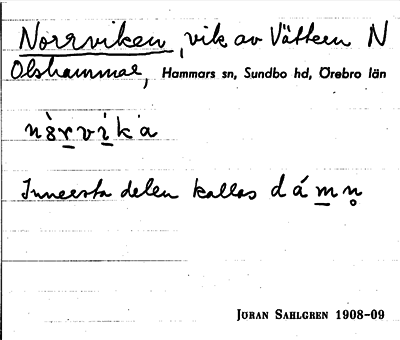 Norrviken, vik av Vättern N
Olshammar, Hammars sn, Sundbo hd, Örebro län
Innersta delen kallas
JÖRAN SAHLGREN 1908-09